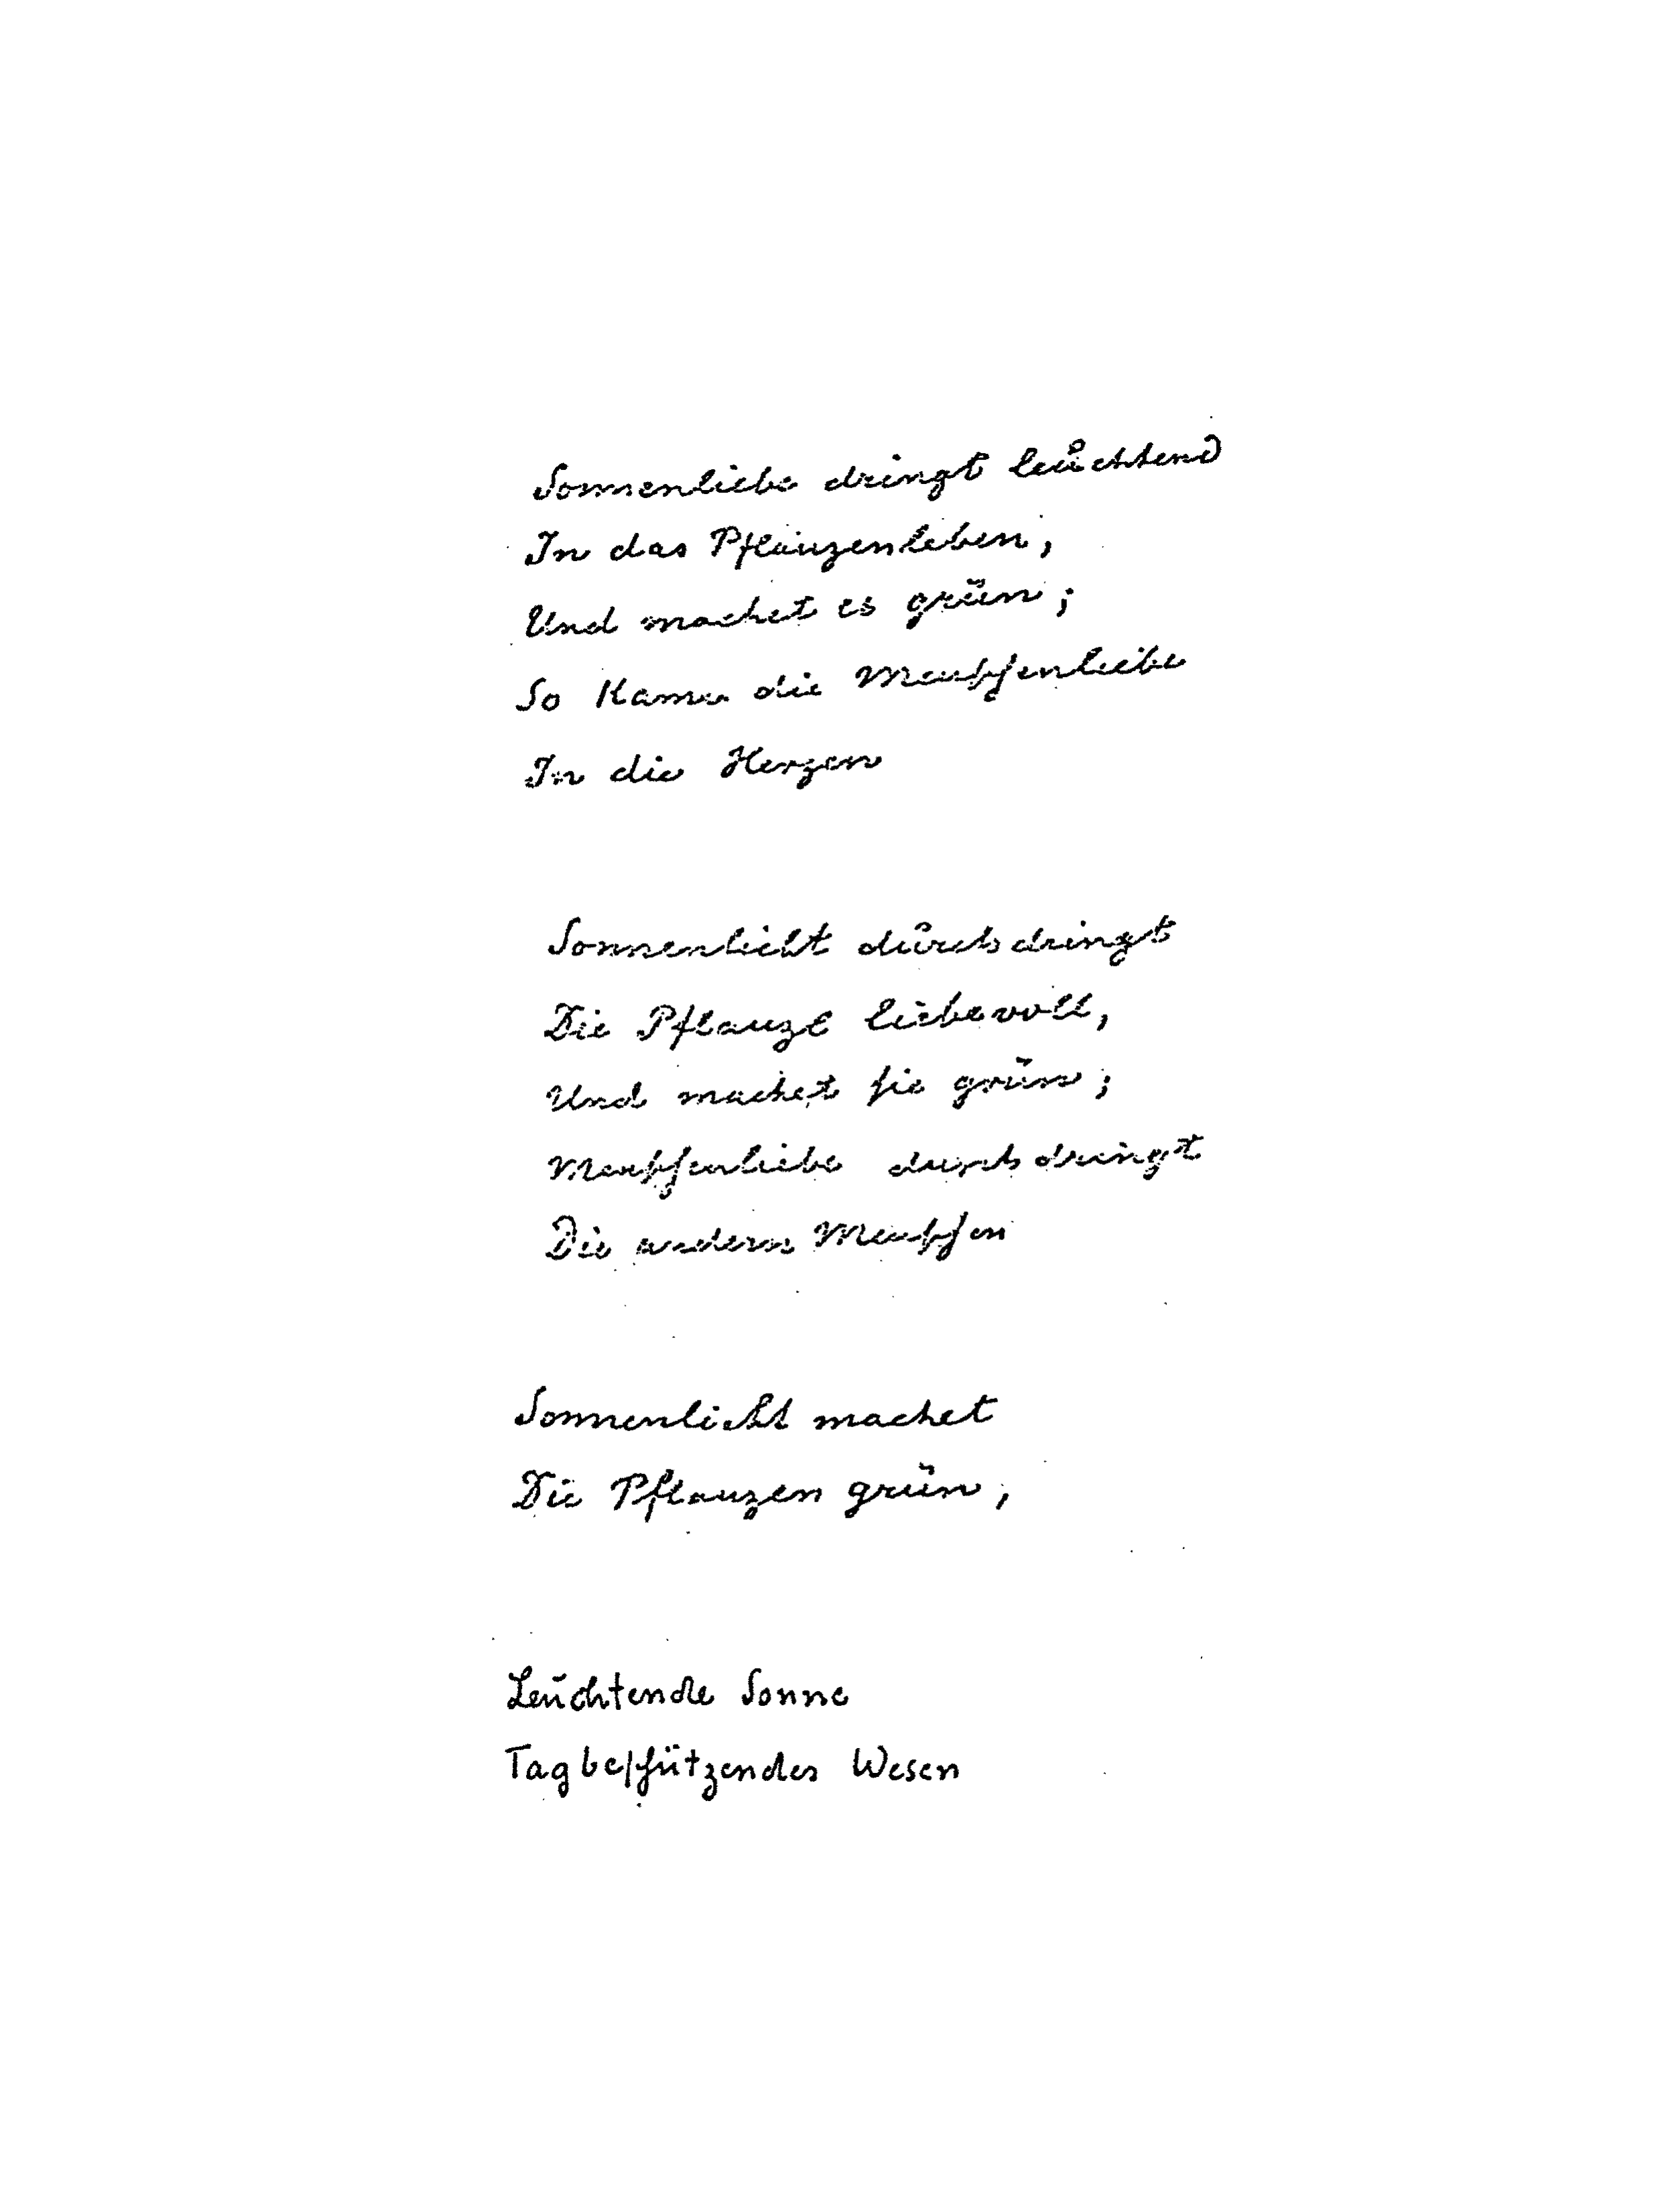 Sonnenliebe dringt leuchtend
In das Pflanzenleben,
Und machet es grün;
So kann die Menschenliebe
In die Herzen
Sonnenlicht durchdringt
Die Pflanze liebevoll,
Und machet sie grün;
Menschenliebe durchdringt
Die andern Menschen
Sonnenlicht machet
Die Pflanzen grün,
Leuchtende Sonne
Tagbeschützendes Wesen